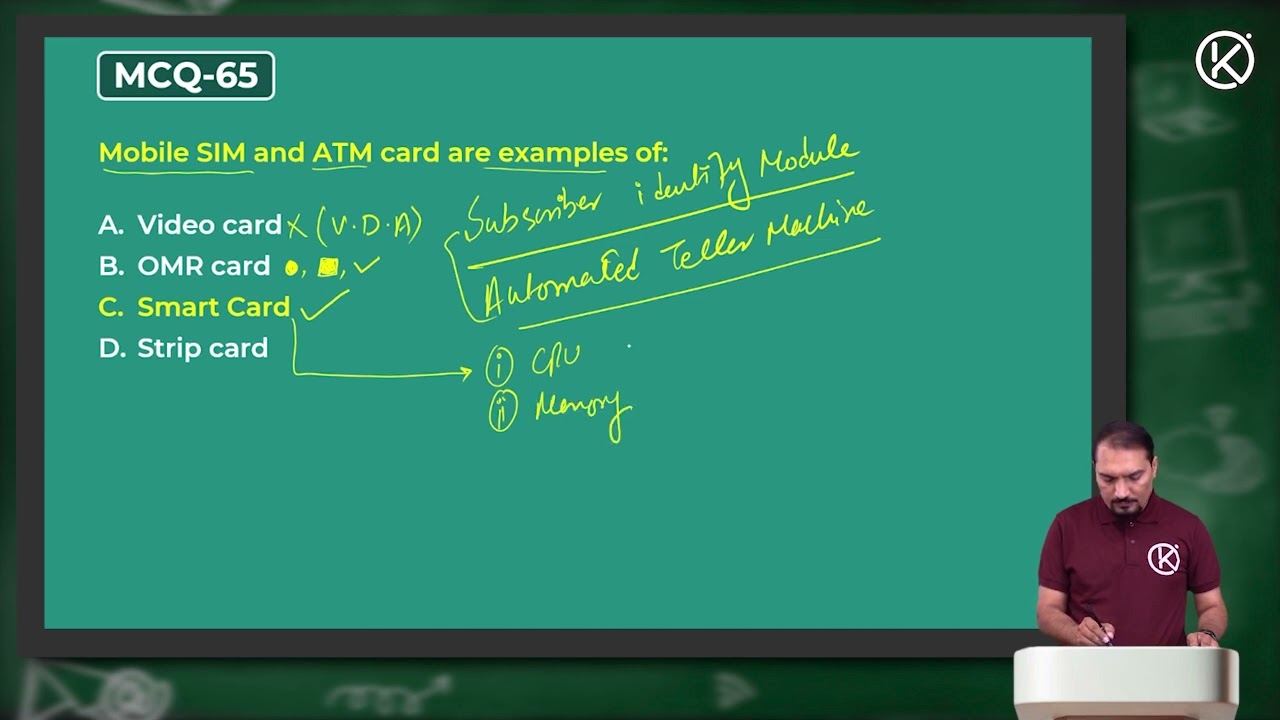 MCQ-65
Mobile SIM and ATM card are examples of:
A. Video card X (V.D.A)
B. OMR card
C. Smart Card
D. Strip card
Subscriber identify Module
Automated Teller Machine
i CPU
ii Memory
K
K